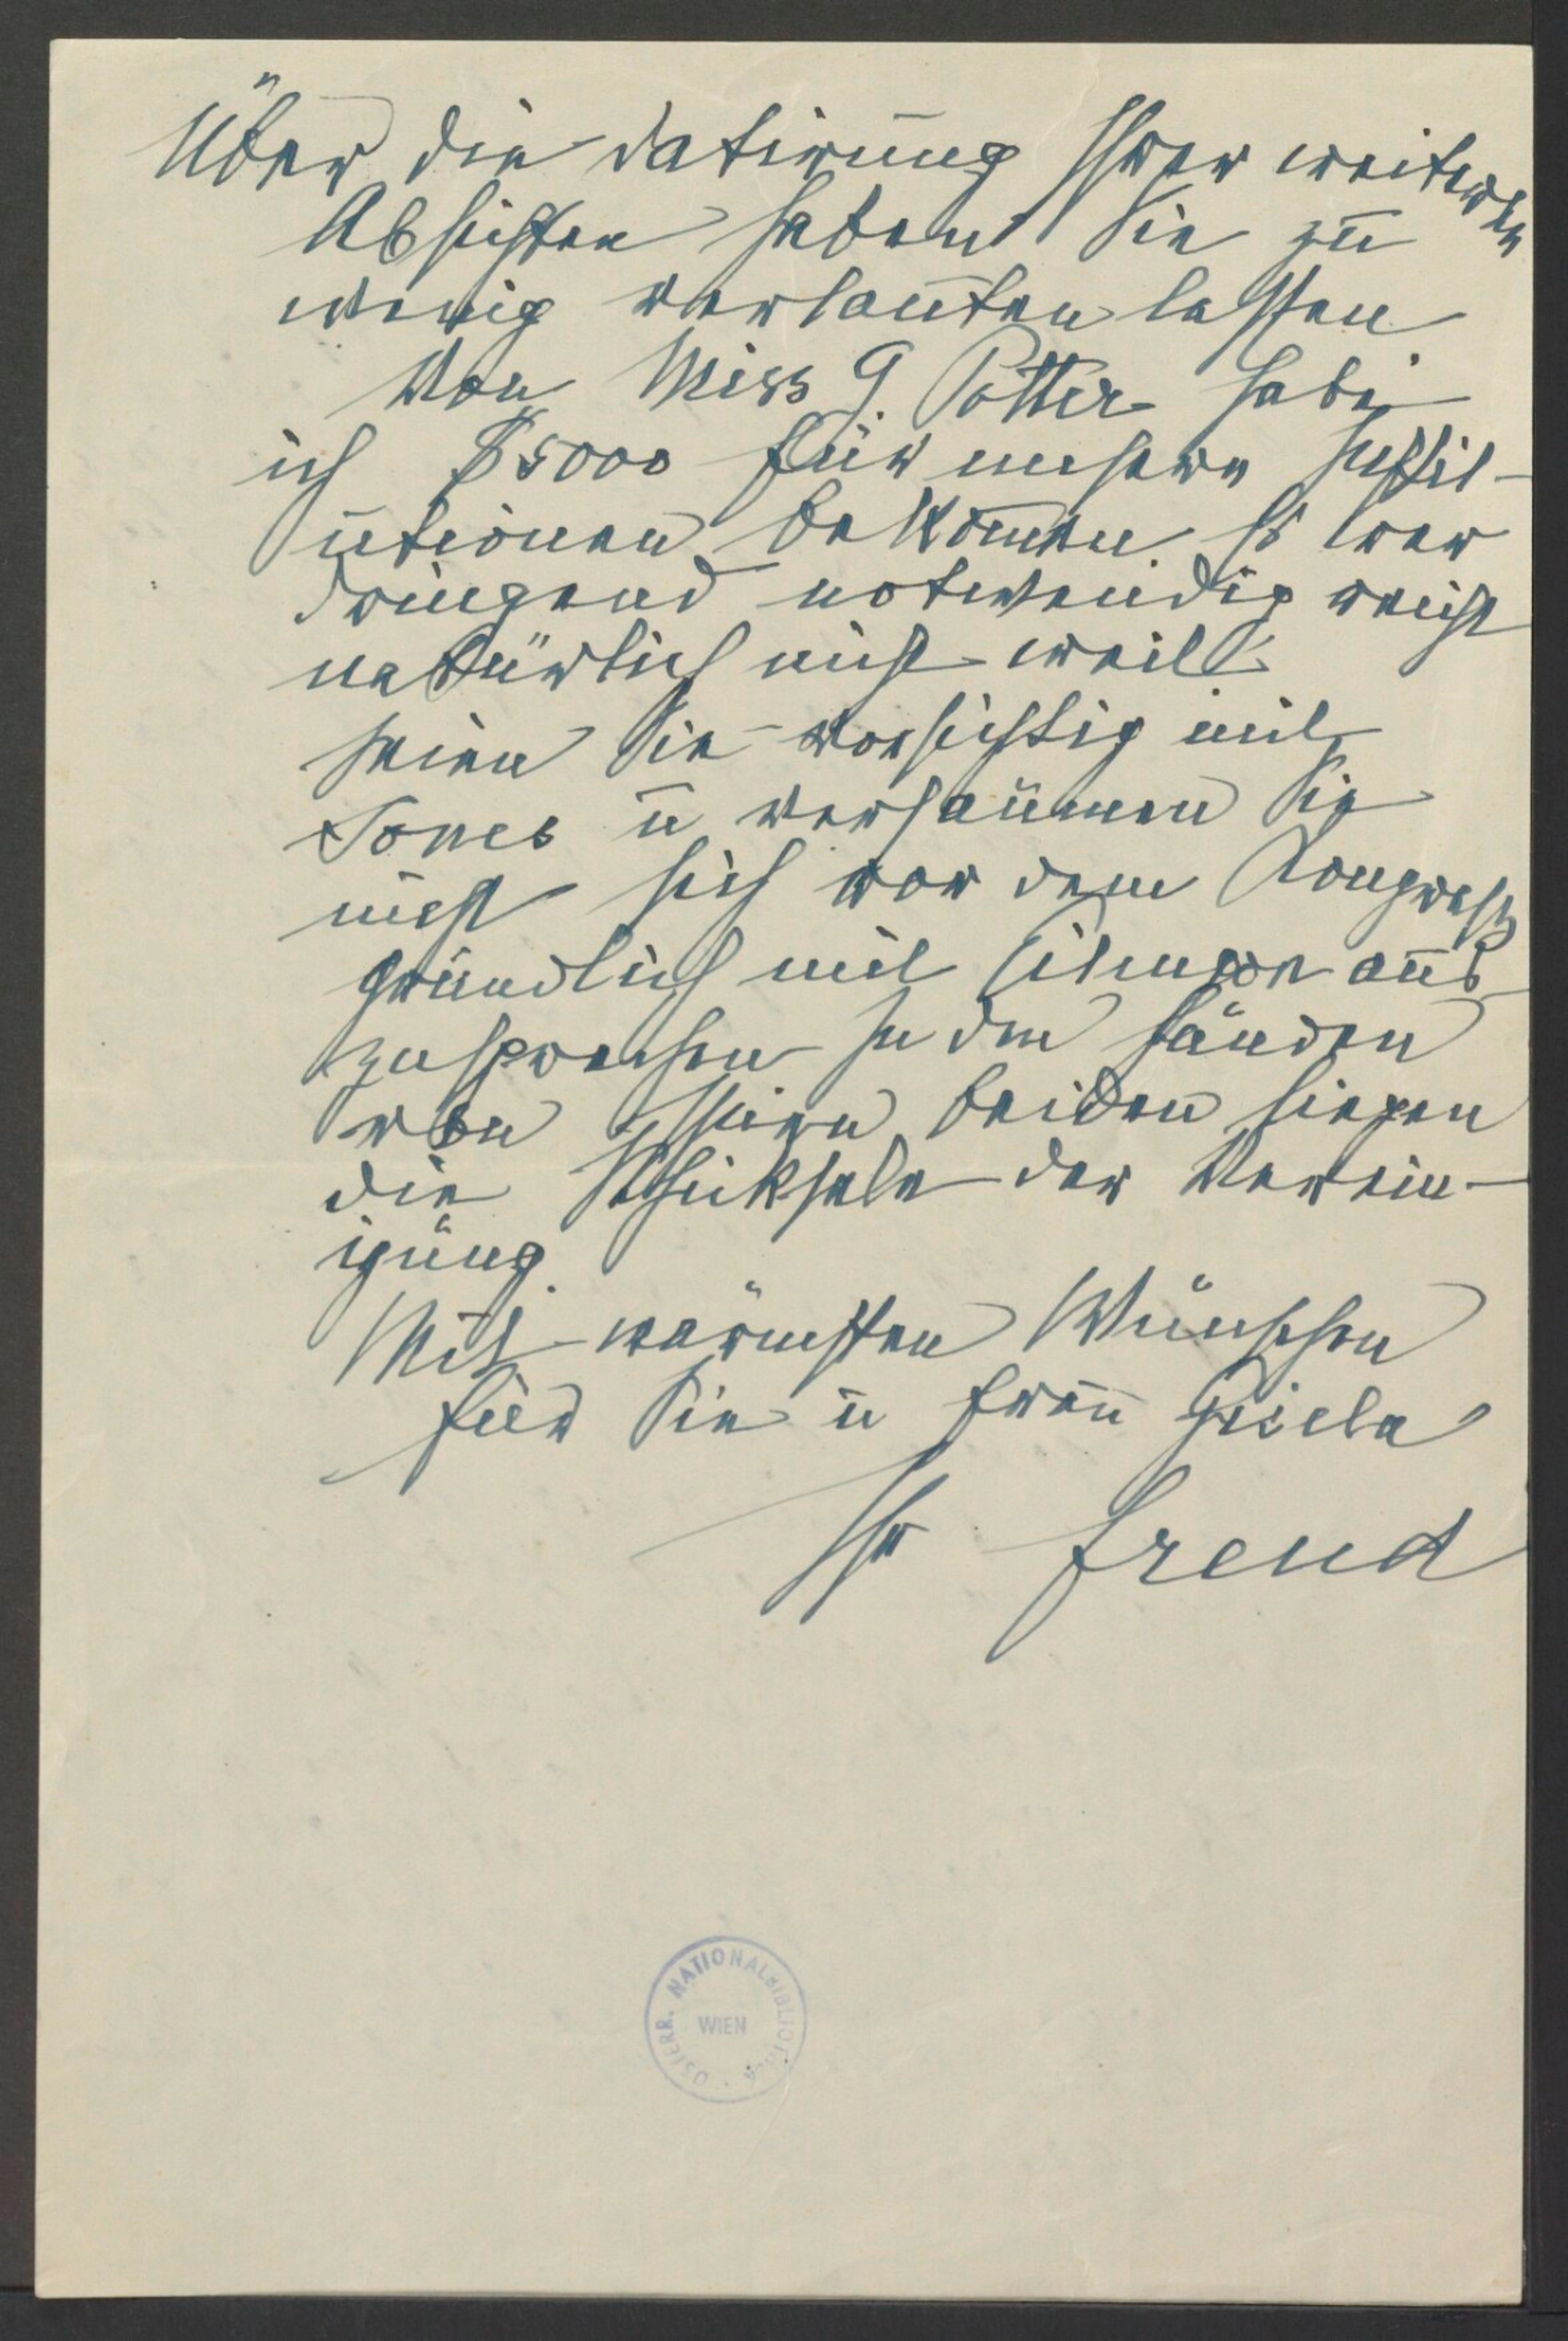 Über die Datirung Ihrer weiteren
Absichten haben Sie zu
wenig verlauten lassen
Von Miss G. Potter habe
ich $5000 für unsere Instit-
utionen bekommen. Es war
dringend notwendig reicht
natürlich nicht weit.
Seien Sie vorsichtig mit
Jones u versäumen Sie
nicht sich vor dem Kongreß
gründlich mit Eitingon aus
zusprechen In den Händen
von Ihnen beiden liegen
die Schicksale der Verein-
igung.
Mit wärmsten Wünschen
für Sie u Frau Gisela
Ihr Freud
ÖSTERR. NATIONALBIBLIOTHEK
WIEN